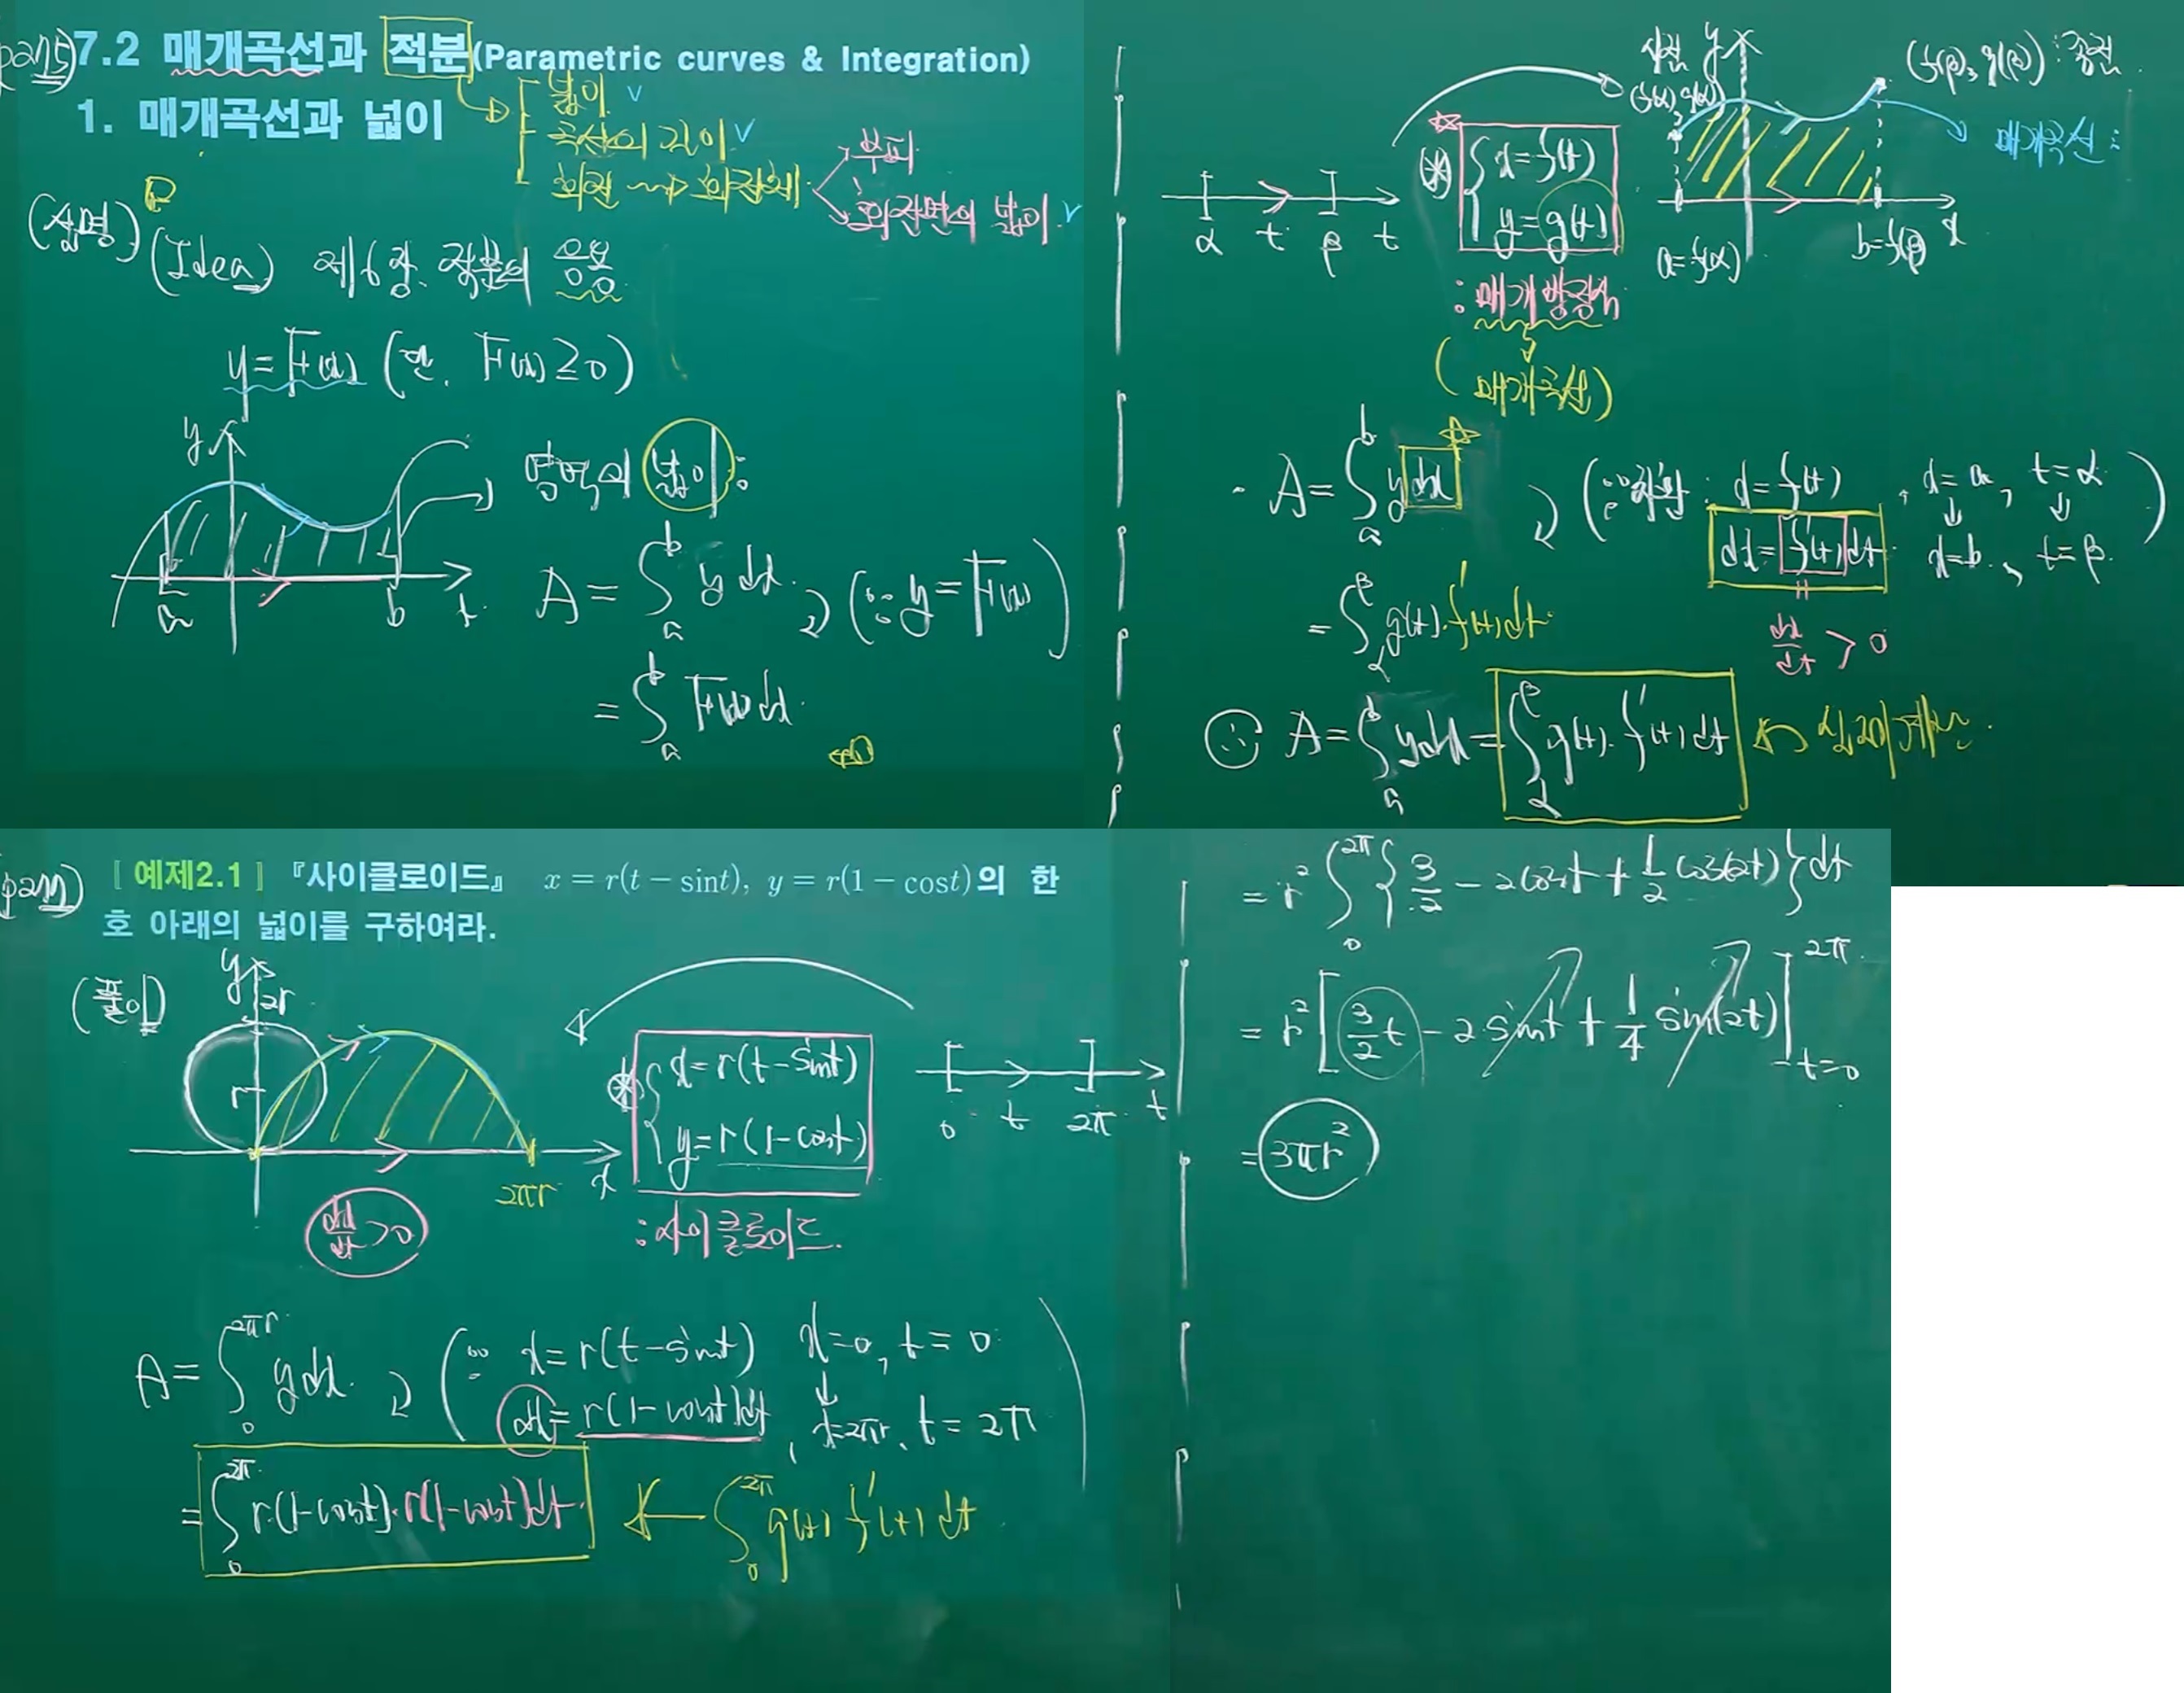 part5) 7.2 매개곡선과 적분(Parametric curves & Integration)
1. 매개곡선과 넓이
넓이 v
곡선의 길이 v
회전 ⇝ 회전체
부피
회전면의 넓이 v
(설명)
(Idea) 제6장. 적분의 응용
y = F(x) (단, F(x) ≥ 0)
y
a b x
영역의 넓이 :
A = ∫_a^b y dx. (∵ y = F(x))
= ∫_a^b F(x) dx.
α t β t
(*) { x = f(t)
y = g(t)
: 매개방정식
( 매개곡선 )
시점 (f(α), g(α)) y
(f(β), g(β)) : 종점
매개곡선 :
a = f(α) b = f(β) x
A = ∫_a^b y dx (∵ 치환 : x = f(t) , x = a, t = α
dx = f'(t) dt x = b, t = β )
dx/dt > 0
= ∫_α^β g(t) · f'(t) dt
∴ A = ∫_a^b y dx = ∫_α^β g(t) · f'(t) dt ← 실제계산
part1) [예제2.1] 『사이클로이드』 x = r(t − sint), y = r(1 − cost)의 한
호 아래의 넓이를 구하여라.
(풀이)
y 2r
r
2πr x
dx/dt > 0
(*) { x = r(t − sint)
y = r(1 − cost)
: 사이클로이드.
0 t 2π t
A = ∫_0^{2πr} y dx. (∵ x = r(t − sint) x = 0, t = 0
dx = r(1 − cost)dt , x = 2πr, t = 2π )
= ∫_0^{2π} r(1 − cost) · r(1 − cost)dt ← ∫_0^{2π} g(t) f'(t) dt
= r² ∫_0^{2π} { 3/2 − 2cost + 1/2 cos(2t) } dt
= r² [ 3/2 t − 2 sint + 1/4 sin(2t) ]_{t=0}^{2π}
= 3πr²